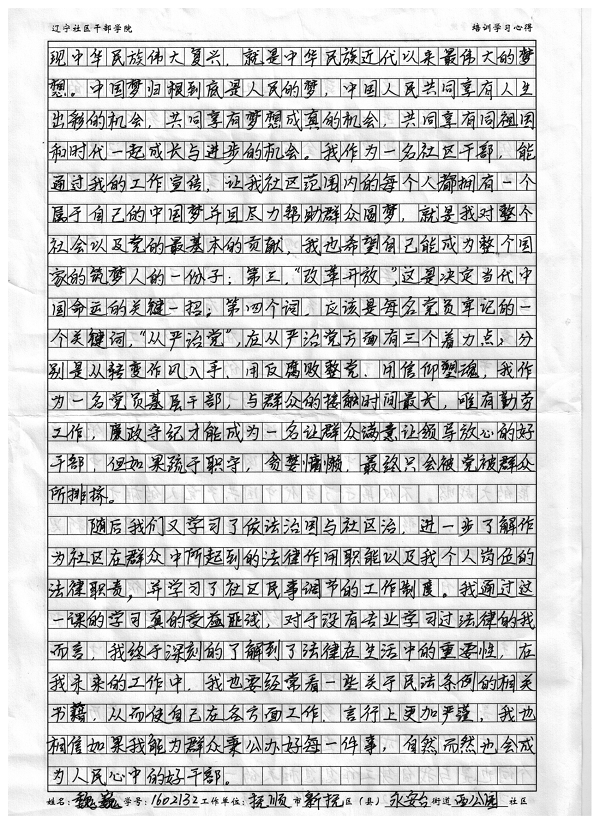 辽宁社区干部学院 培训学习心得
现中华民族伟大复兴，就是中华民族近代以来最伟大的梦
想。中国梦归根到底是人民的梦，中国人民共同享有人生
出彩的机会，共同享有梦想成真的机会，共同享有同祖国
和时代一起成长与进步的机会。我作为一名社区干部，能
通过我的工作宣传，让我社区范围内的每个人都拥有一个
属于自己的中国梦并且尽力帮助群众圆梦，就是我对整个
社会以及党的最基本的贡献，我也希望自己能成为整个国
家的筑梦人的一份子；第三，“改革开放”，这是决定当代中
国命运的关键一招；第四个词，应该是每名党员牢记的一
个关键词，“从严治党”，在从严治党方面有三个着力点；分
别是从转变作风入手，用反腐败整党，用信仰塑魂，我作
为一名党员基层干部，与群众的接触时间最长，唯有勤劳
工作，廉政守纪才能成为一名让群众满意让领导放心的好
干部，但如果疏于职守，贪婪慵懒，最终只会被党被群众
所排挤。
随后我们又学习了依法治国与社区治，进一步了解作
为社区在群众中所起到的法律作用职能以及我个人岗位的
法律职责，并学习了社区民事调节的工作制度。我通过这
一课的学习真的受益匪浅，对于没有专业学习过法律的我
而言，我终于深刻的了解到了法律在生活中的重要性，在
我未来的工作中，我也要经常看一些关于民法条例的相关
书籍，从而使自己在各方面工作、言行上更加严谨，我也
相信如果我能为群众秉公办好每一件事，自然而然也会成
为人民心中的好干部。
姓名：魏巍 学号：1602132 工作单位：抚顺 市 新抚 区（县） 永安台 街道 西公园 社区